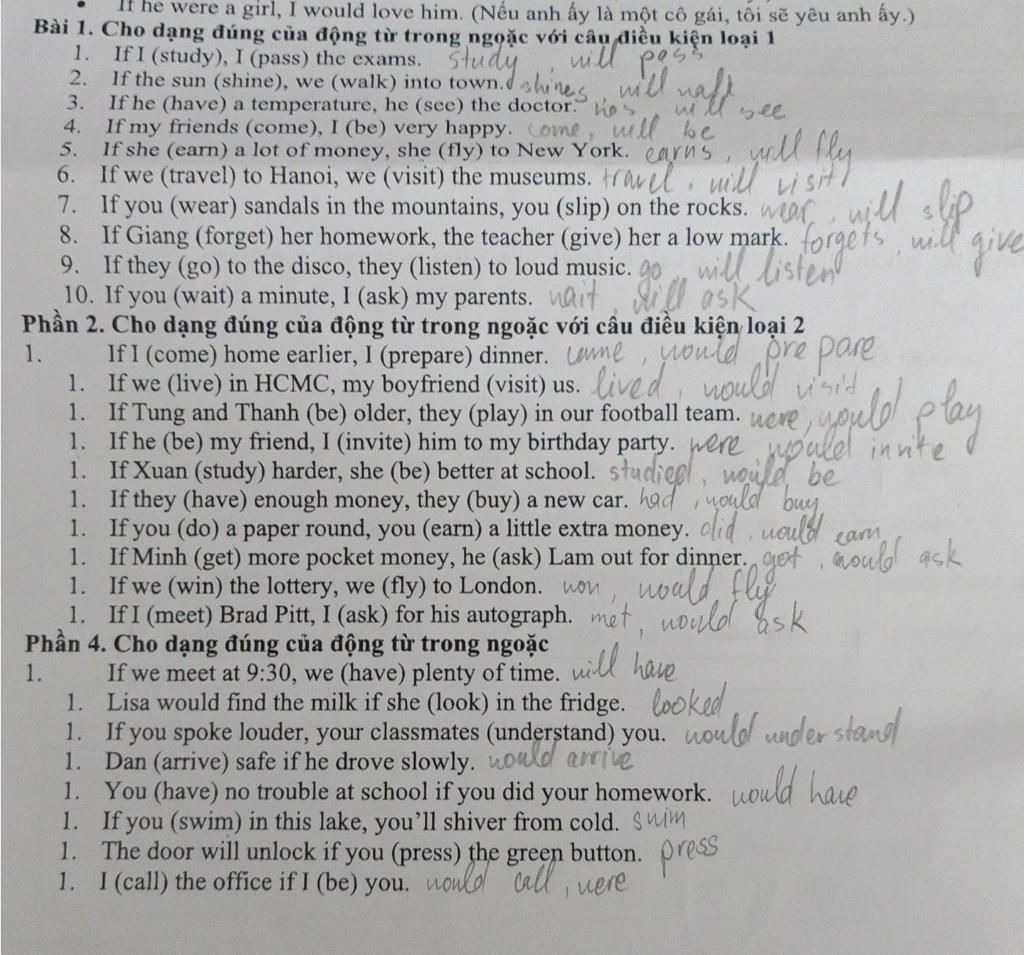 • If he were a girl, I would love him. (Nếu anh ấy là một cô gái, tôi sẽ yêu anh ấy.)
Bài 1. Cho dạng đúng của động từ trong ngoặc với câu điều kiện loại 1
1. If I (study), I (pass) the exams. study, will pass
2. If the sun (shine), we (walk) into town. shines, will walk
3. If he (have) a temperature, he (see) the doctor. has will see
4. If my friends (come), I (be) very happy. come, will be
5. If she (earn) a lot of money, she (fly) to New York. earns, will fly
6. If we (travel) to Hanoi, we (visit) the museums. travel, will visit
7. If you (wear) sandals in the mountains, you (slip) on the rocks. wear, will slip
8. If Giang (forget) her homework, the teacher (give) her a low mark. forgets, will give
9. If they (go) to the disco, they (listen) to loud music. go, will listen
10. If you (wait) a minute, I (ask) my parents. wait, will ask
Phần 2. Cho dạng đúng của động từ trong ngoặc với câu điều kiện loại 2
1. If I (come) home earlier, I (prepare) dinner. came, would prepare
1. If we (live) in HCMC, my boyfriend (visit) us. lived, would visit
1. If Tung and Thanh (be) older, they (play) in our football team. were, would play
1. If he (be) my friend, I (invite) him to my birthday party. were would invite
1. If Xuan (study) harder, she (be) better at school. studied, would be
1. If they (have) enough money, they (buy) a new car. had, would buy
1. If you (do) a paper round, you (earn) a little extra money. did, would earn
1. If Minh (get) more pocket money, he (ask) Lam out for dinner. got, would ask
1. If we (win) the lottery, we (fly) to London. won, would fly
1. If I (meet) Brad Pitt, I (ask) for his autograph. met, would ask
Phần 4. Cho dạng đúng của động từ trong ngoặc
1. If we meet at 9:30, we (have) plenty of time. will have
1. Lisa would find the milk if she (look) in the fridge. looked
1. If you spoke louder, your classmates (understand) you. would understand
1. Dan (arrive) safe if he drove slowly. would arrive
1. You (have) no trouble at school if you did your homework. would have
1. If you (swim) in this lake, you'll shiver from cold. swim
1. The door will unlock if you (press) the green button. press
1. I (call) the office if I (be) you. would call, were